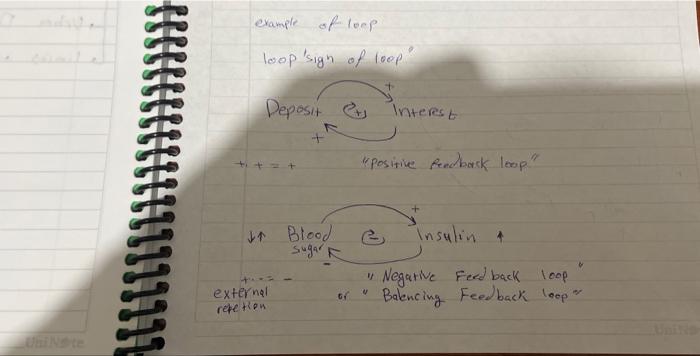 example of loop
loop "sign of loop"
+
Deposit (+) Interest
+
+ . + = + "Positive feedback loop"
+
↓↑ Blood sugar (-) Insulin ↑
-
+ . - = - "Negative Feedback loop"
external or "Balencing Feedback loop"
UniNote
UniNote